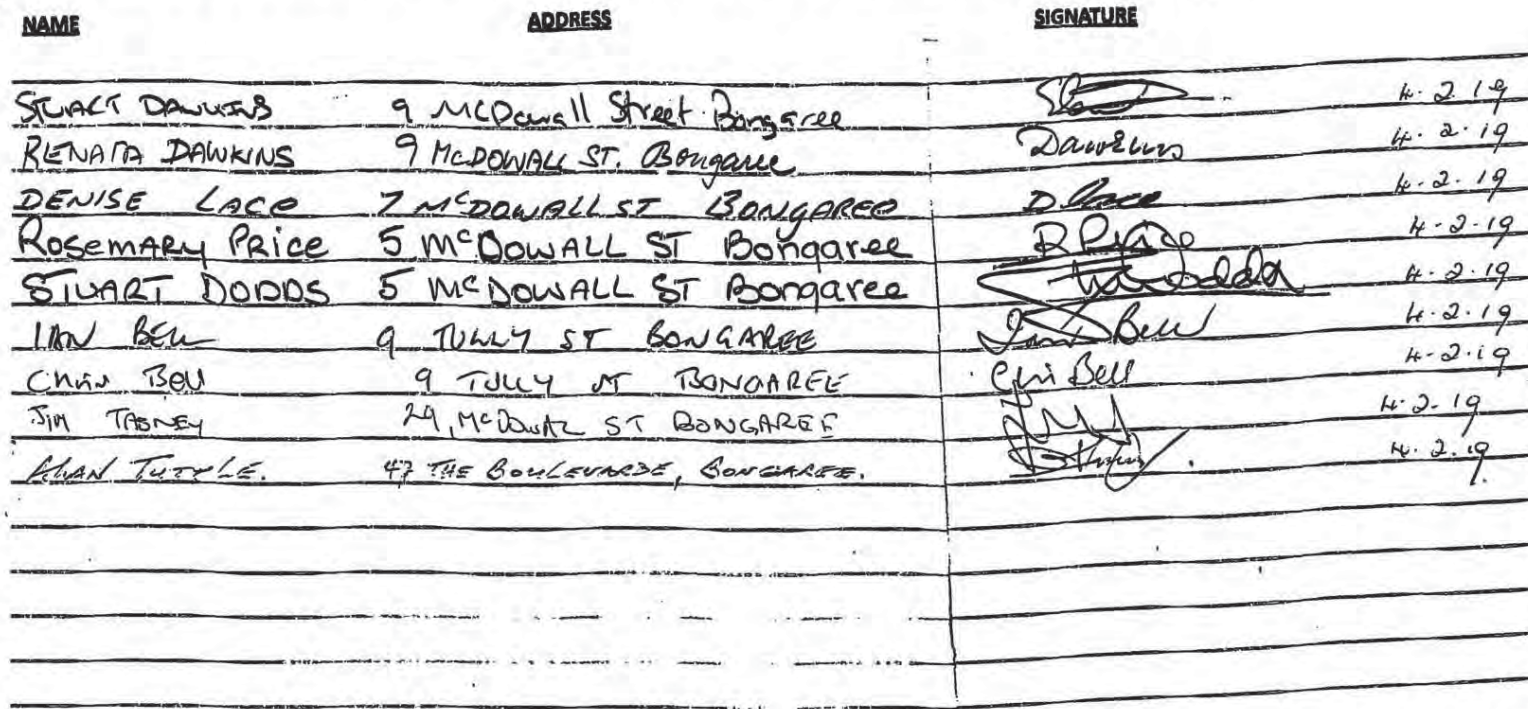 NAME ADDRESS SIGNATURE
STUART DAWKINS 9 McDowall Street Bongaree 4.2.19
RENATA DAWKINS 9 McDOWALL ST. Bongaree Dawkins 4.2.19
DENISE LACE 7 McDOWALL ST BONGAREE D. Lace 4.2.19
Rosemary Price 5 McDOWALL ST Bongaree R Price 4.2.19
STUART DODDS 5 McDOWALL ST Bongaree 4.2.19
IAN BELL 9 TULLY ST BONGAREE Ian Bell 4.2.19
Chris Bell 9 TULLY ST BONGAREE Chris Bell 4.2.19
JIM 29, McDOWAL ST BONGAREE 4.2.19
ALAN TUTTLE. 47 THE BOULEVARDE, BONGAREE. 4.2.19